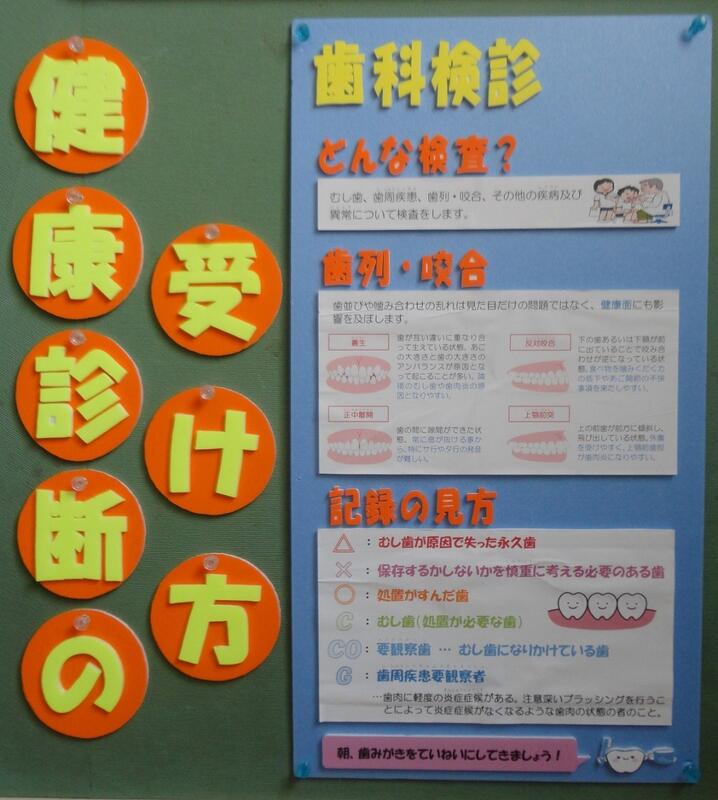 健康診断の
受け方
歯科検診
どんな検査？
むし歯、歯周疾患、歯列・咬合、その他の疾病及び
異常について検査をします。
歯列・咬合
歯並びや噛み合わせの乱れは見た目だけの問題ではなく、健康面にも影
響を及ぼします。
叢生
歯が互い違いに重なり合
って生えている状態。あご
の大きさと歯の大きさの
アンバランスが原因とな
って起こることが多い。
のむし歯や歯肉炎の原
因となりやすい。
反対咬合
下の歯あるいは下顎が前
に出ていることで咬み合
わせが逆になっている状
態。食べ物を噛みくだく力
の低下やあご関節の不快
事項を来たしやすい。
正中離開
歯の間に隙間ができた状
態。常に息が抜ける事か
ら、特にサ行やタ行の発音
が難しい。
上顎前突
上の前歯が前方に傾斜し、
飛び出している状態。外傷
を受けやすく、上顎前歯部
が歯肉炎になりやすい。
記録の見方
△ ： むし歯が原因で失った永久歯
× ： 保存するかしないかを慎重に考える必要のある歯
○ ： 処置がすんだ歯
C ： むし歯（処置が必要な歯）
CO ： 要観察歯 … むし歯になりかけている歯
G ： 歯周疾患要観察者
…歯肉に軽度の炎症症候がある。注意深いブラッシングを行うこ
とによって炎症症候がなくなるような歯肉の状態の者のこと。
朝、歯みがきをていねいにしてきましょう！